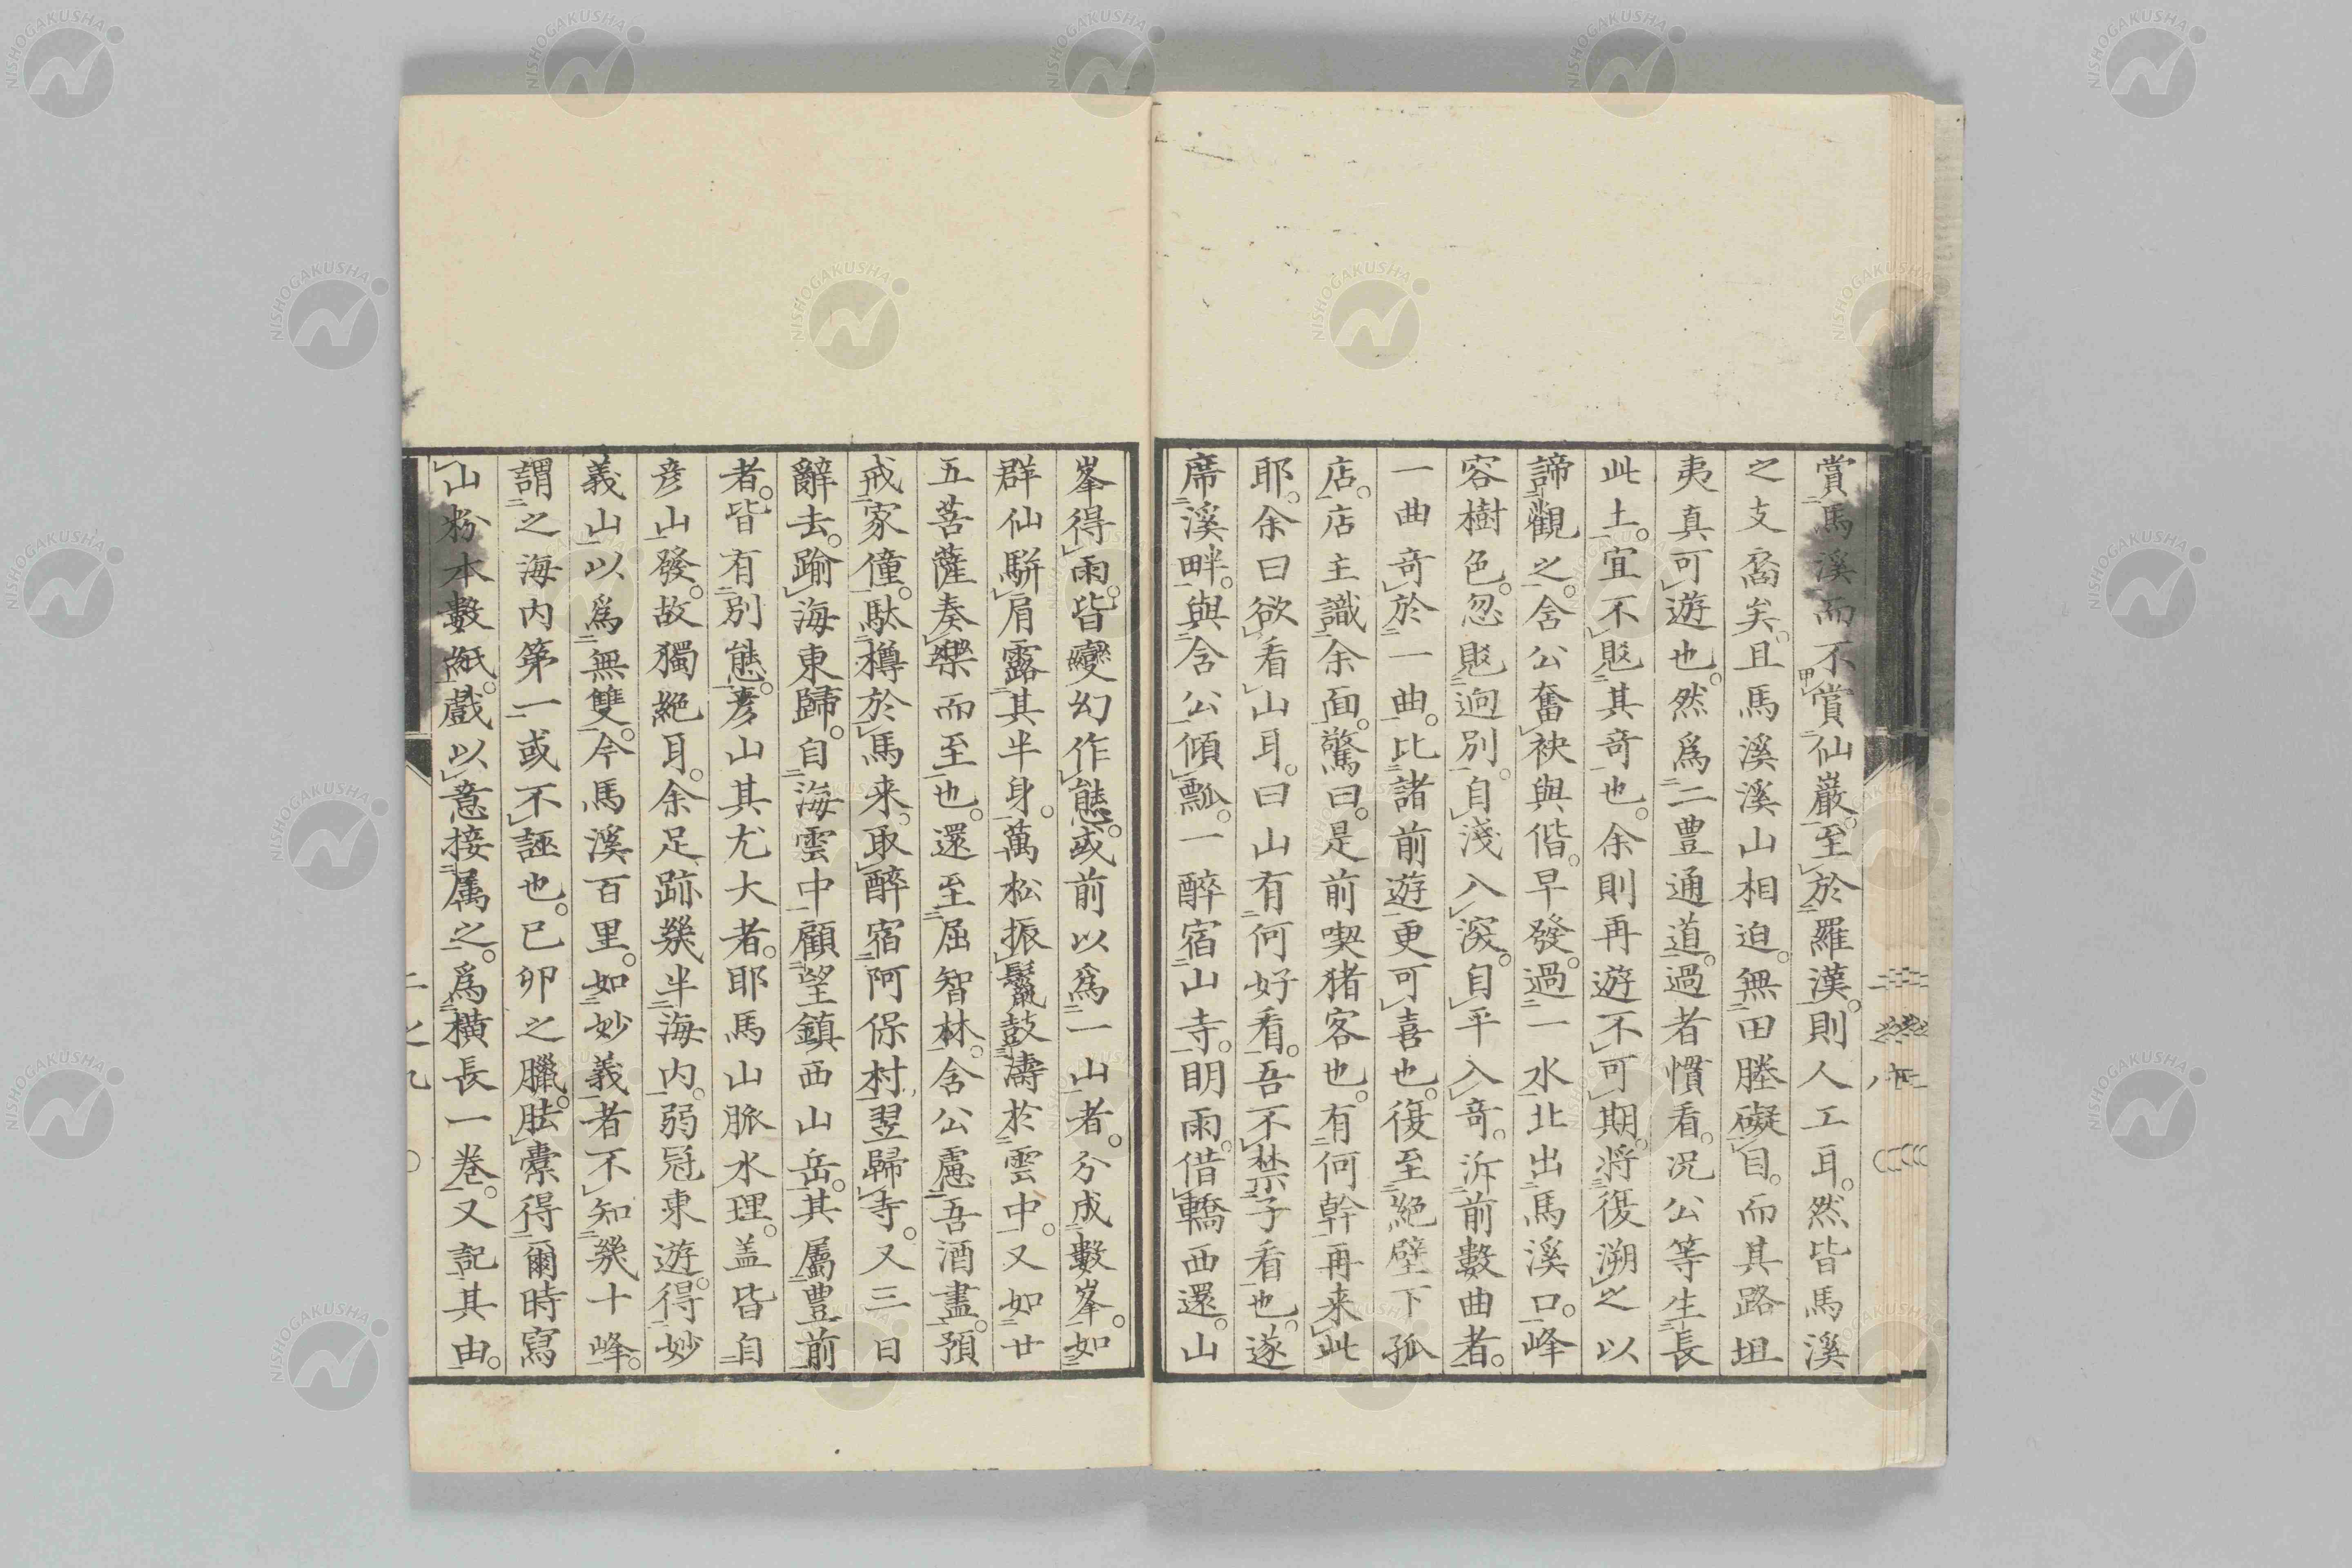 賞馬溪而不賞仙巖。至於羅漢。則人工耳。然皆馬溪
之支裔矣。且馬溪溪山相迫。無田塍礙目。而其路坦
夷真可遊也。然爲二豊通道。過者慣看。况公等生長
此土。宜不覐其奇也。余則再遊不可期。將復溯之以
諦觀之。含公奮袂與偕。早發。過一水北出馬溪口。峰
容樹色。忽覐逈別。自淺入深。自平入奇。泝前數曲者。
一曲奇於一曲。比諸前遊更可喜也。復至絕壁下孤
店。店主識余面。驚曰。是前喫猪客也。有何幹再来此
耶。余曰欲看山耳。曰山有何好看。吾不禁子看也。遂
席溪畔。與含公傾瓢。一醉宿山寺。明雨。借轎西還。山
峯得雨。皆變幻作態。或前以爲一山者。分成數峯。如
群仙駢肩露其半身。萬松振鬣鼓濤於雲中。又如廿
五菩薩奏樂而至也。還至屈智林。含公慮吾酒盡。預
戒家僮。馱樽於馬来。取醉宿阿保村。翌歸寺。又三日
辭去。踰海東歸。自海雲中顧望鎮西山岳。其屬豊前
者。皆有別態。彥山其尤大者。耶馬山脈水理。盖皆自
彥山發。故獨絕耳。余足跡幾半海内。弱冠東遊。得妙
義山以爲無雙。今馬溪百里。如妙義者不知幾十峰。
謂之海内第一或不誣也。已卯之臘。胠橐得爾時寫
山粉本數紙。戲以意接属之。爲横長一卷。又記其由。
NISHOGAKUSHA